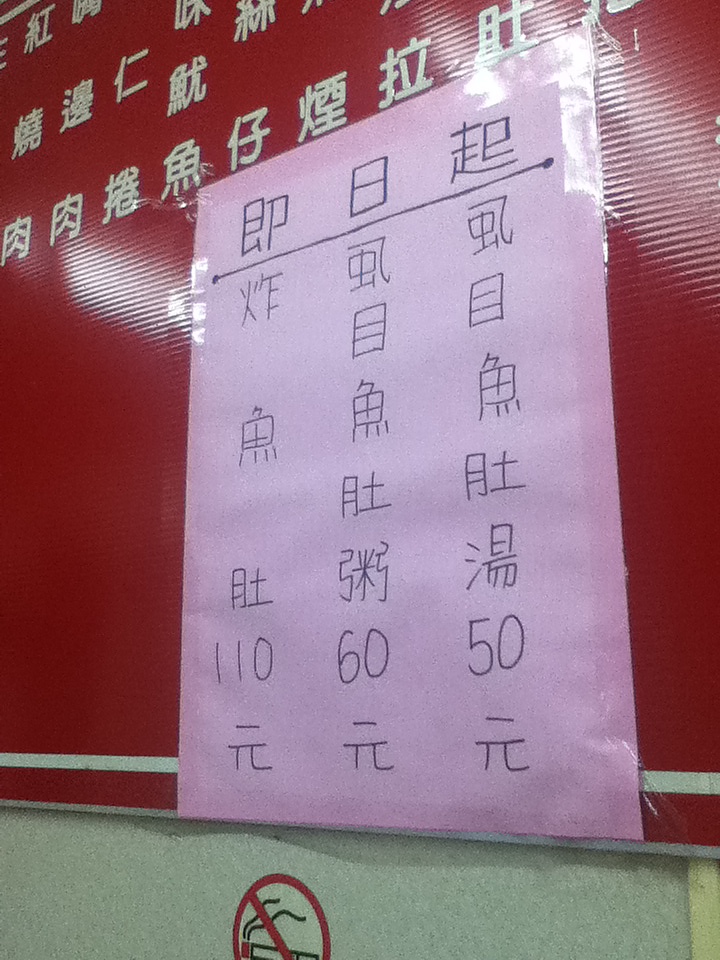 即日起
虱目魚肚湯50元
虱目魚肚粥60元
炸魚肚110元
肚
拉
煙
魚仔
魷
仁
邊
燒
捲
肉
肉
紅